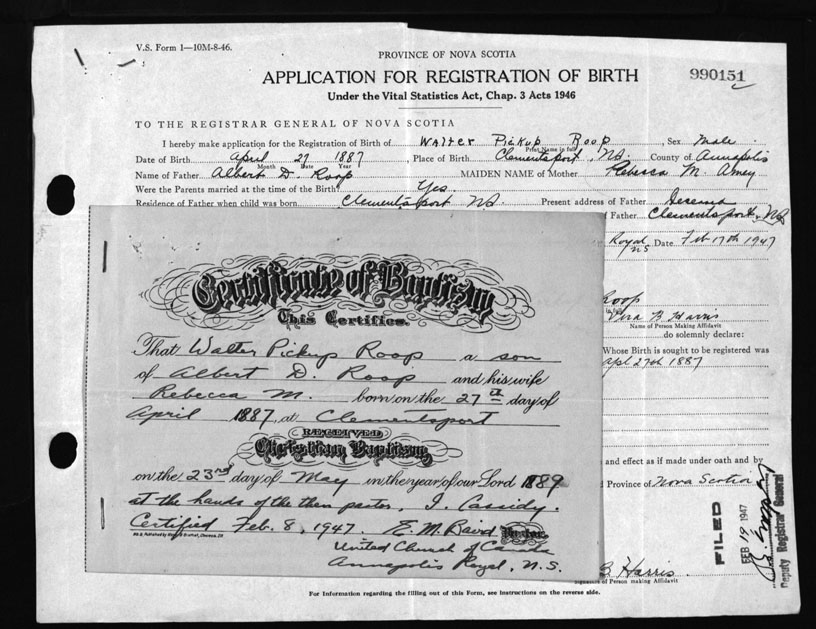 V.S. Form 1—10M-8-46.
PROVINCE OF NOVA SCOTIA
APPLICATION FOR REGISTRATION OF BIRTH
990151
Under the Vital Statistics Act, Chap. 3 Acts 1946
TO THE REGISTRAR GENERAL OF NOVA SCOTIA
I hereby make application for the Registration of Birth of Walter Pickup Roop Sex Male
Print Name in full
Date of Birth April 27 1887, Place of Birth Clementsport, NS. County of Annapolis
Month Date Year
Name of Father Albert D. Roop MAIDEN NAME of Mother Rebecca M. Amey
Were the Parents married at the time of the Birth Yes.
Residence of Father when child was born Clementsport NS. Present address of Father
of Father Clementsport, NS
Royal NS Date Feb 17th 1947
Certificate of Baptism
This Certifies.
That Walter Pickup Roop a son
of Albert D. Roop and his wife
Rebecca M. born on the 27th day of
April 1887, at Clementsport
RECEIVED
Christian Baptism
on the 23rd day of May in the year of our Lord 1889
at the hands of the then pastor, I. Cassidy.
Certified Feb. 8, 1947. E. M. Baird
United Church of Canada
Annapolis Royal, N.S.
Roop
Vera B Harris
Name of Person Making Affidavit
do solemnly declare:
Whose Birth is sought to be registered was
Apl 27th 1887
and effect as if made under oath and by
Province of Nova Scotia
FILED
FEB 19 1947
Deputy Registrar General
B Harris
Signature of Person making Affidavit
For Information regarding the filling out of this Form, see instructions on the reverse side.